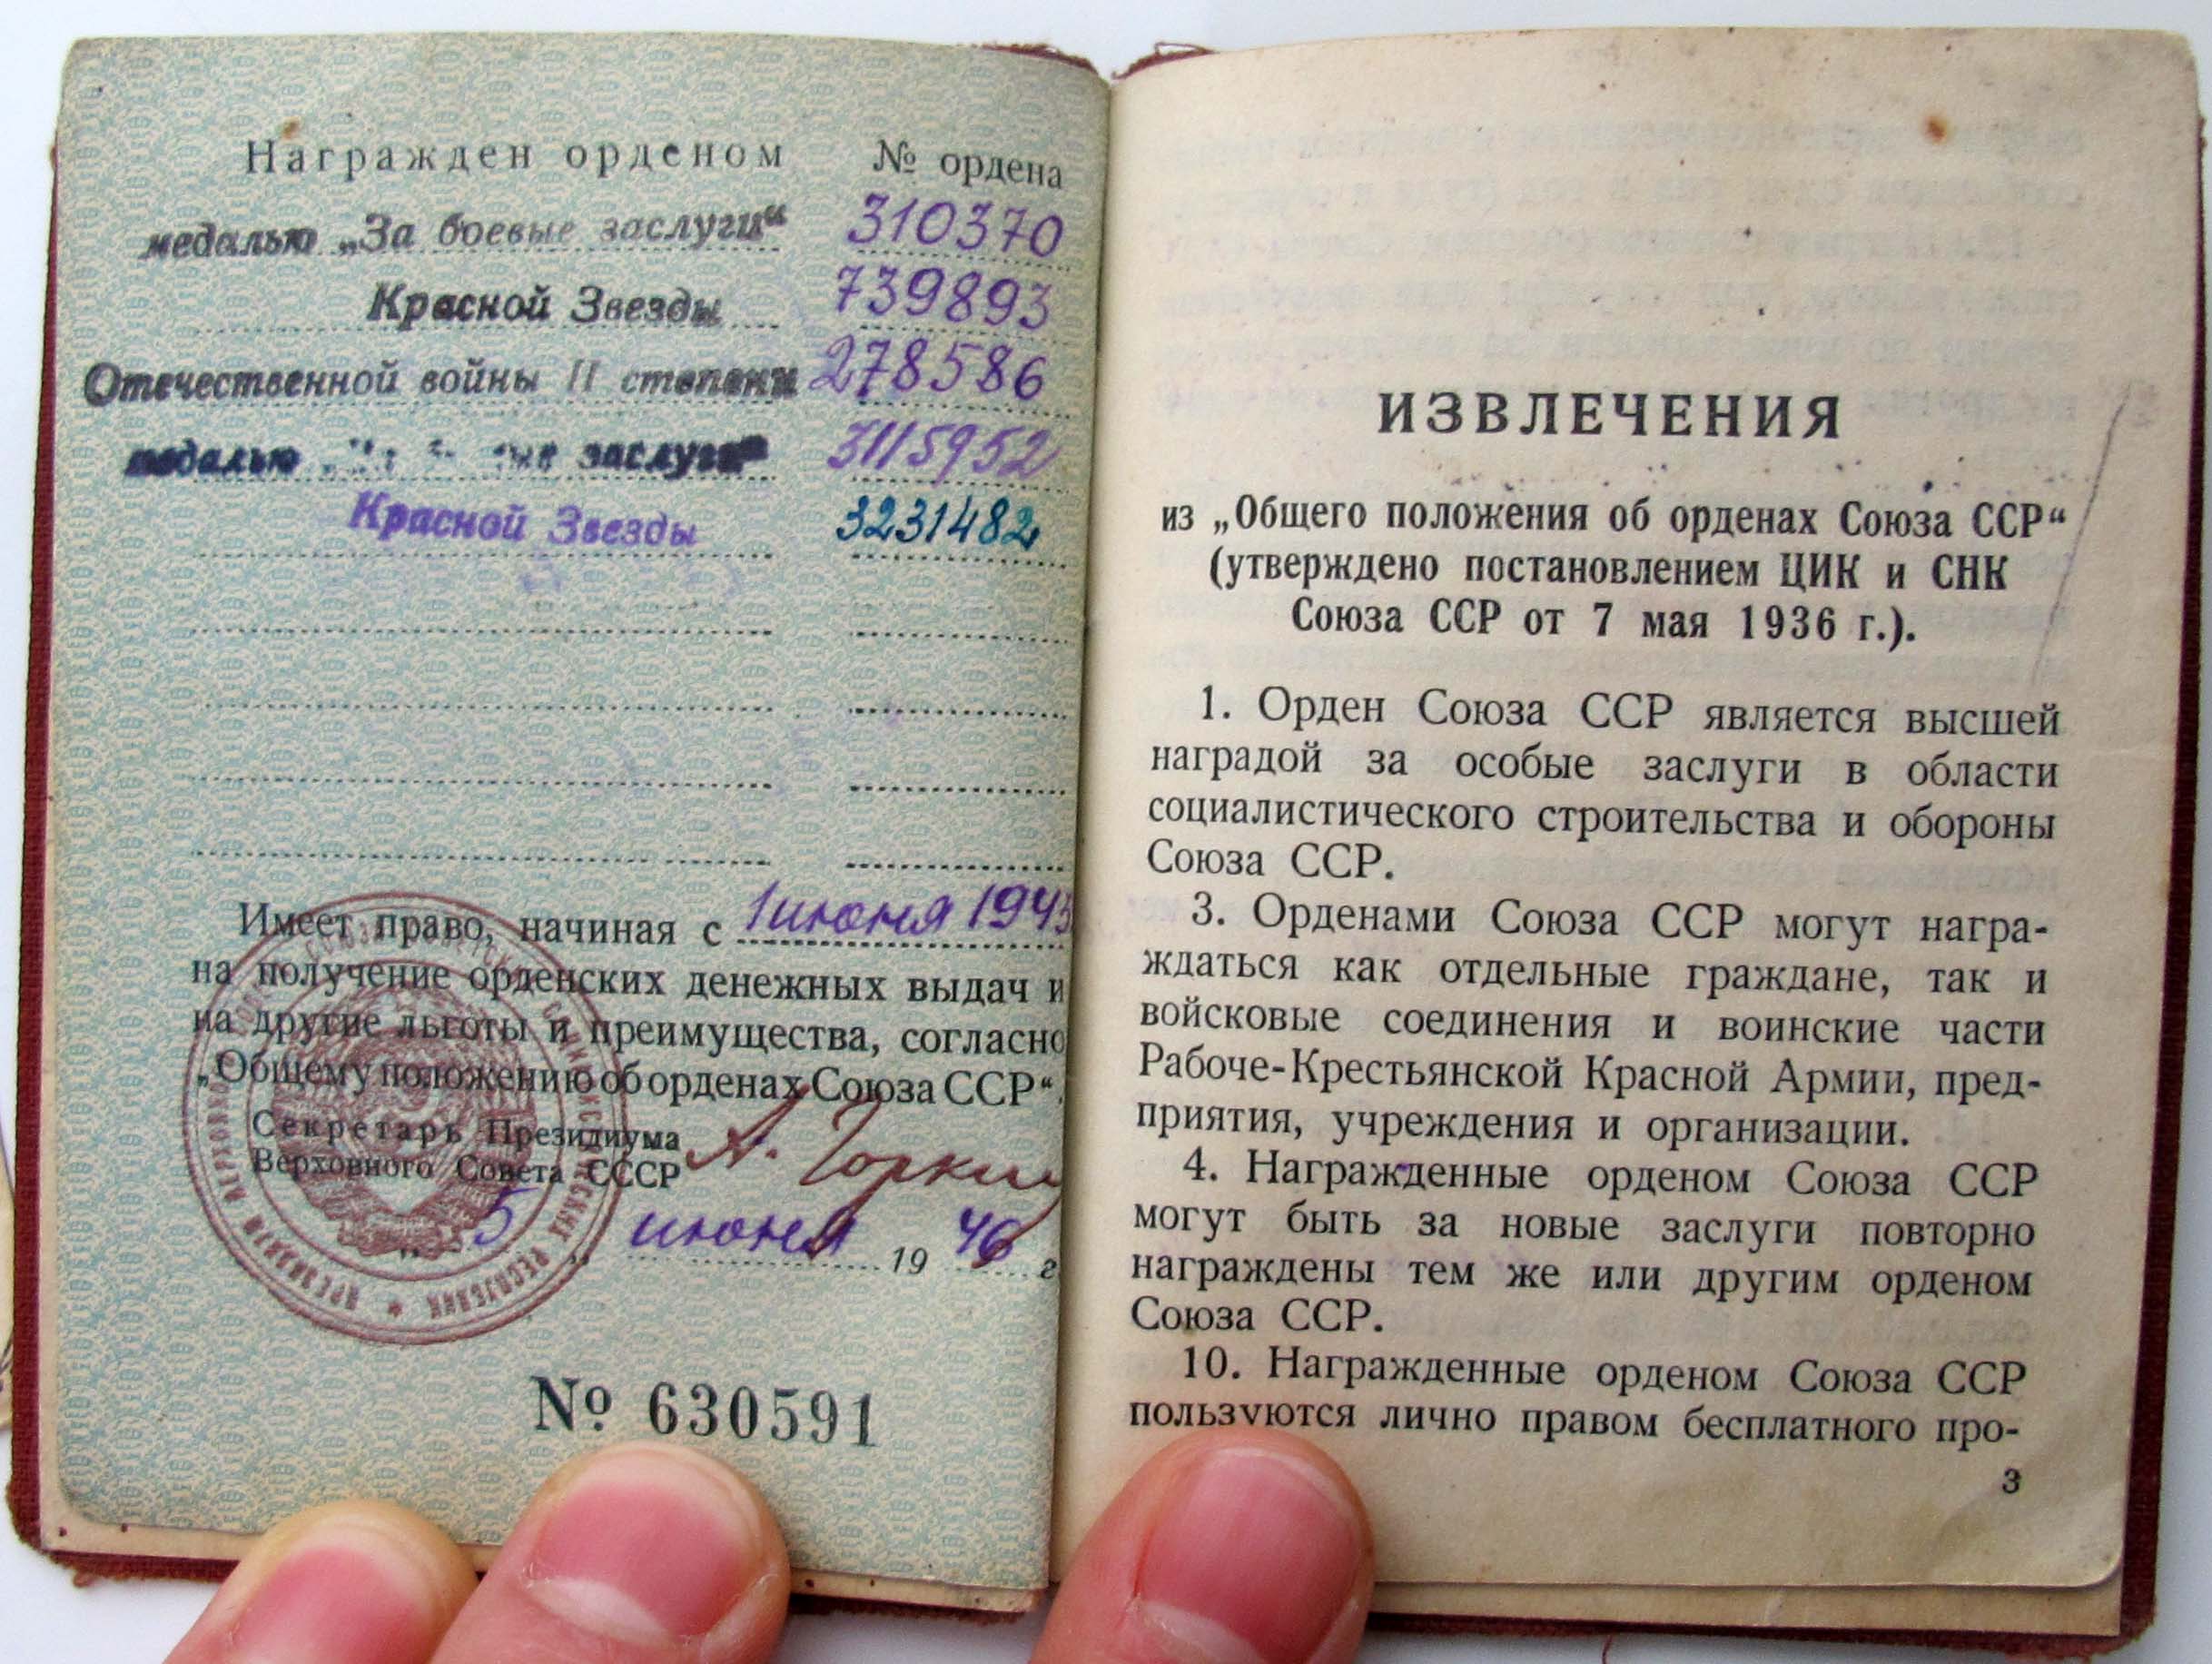 Награжден орденом № ордена
медалью „За боевые заслуги“ 310370
Красной Звезды 739893
Отечественной войны II степени 278586
медалью заслуги“ 3115952
Красной Звезды 3231482
Имеет право, начиная с 1 июня 1945
на получение орденских денежных выдач и
на другие льготы и преимущества, согласно
„Общему положению об орденах Союза ССР“.
Секретарь Президиума
Верховного Совета СССР А. Горкин
„5„ июня 1946 г
№ 630591
ИЗВЛЕЧЕНИЯ
из „Общего положения об орденах Союза ССР“
(утверждено постановлением ЦИК и СНК
Союза ССР от 7 мая 1936 г.).
1. Орден Союза ССР является высшей
наградой за особые заслуги в области
социалистического строительства и обороны
Союза ССР.
3. Орденами Союза ССР могут награ-
ждаться как отдельные граждане, так и
войсковые соединения и воинские части
Рабоче-Крестьянской Красной Армии, пред-
приятия, учреждения и организации.
4. Награжденные орденом Союза ССР
могут быть за новые заслуги повторно
награждены тем же или другим орденом
Союза ССР.
10. Награжденные орденом Союза ССР
пользуются лично правом бесплатного про-
3